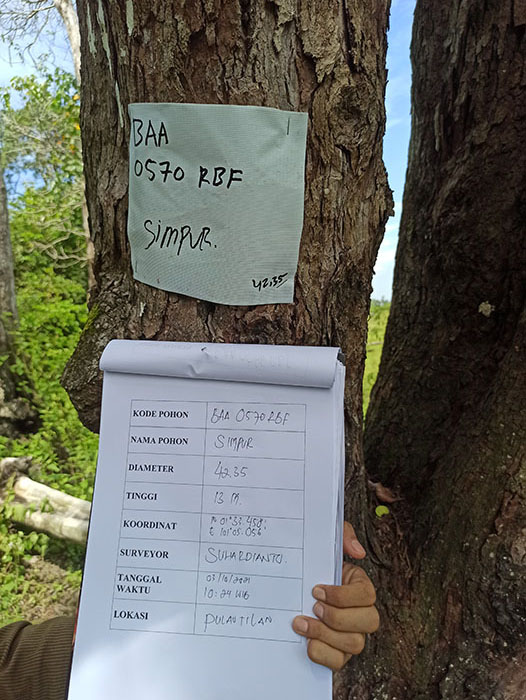 BAA
0570 RBF
SIMPUR.
42,35
KODE POHON BAA 0570 RBF
NAMA POHON SIMPUR
DIAMETER 42.35
TINGGI 13 M.
KOORDINAT N 01°33.458'
E 101°05.056
SURVEYOR SUHARDIANTO.
TANGGAL 03/10/2021
WAKTU 10:24 WIB
LOKASI PULAU TILAN